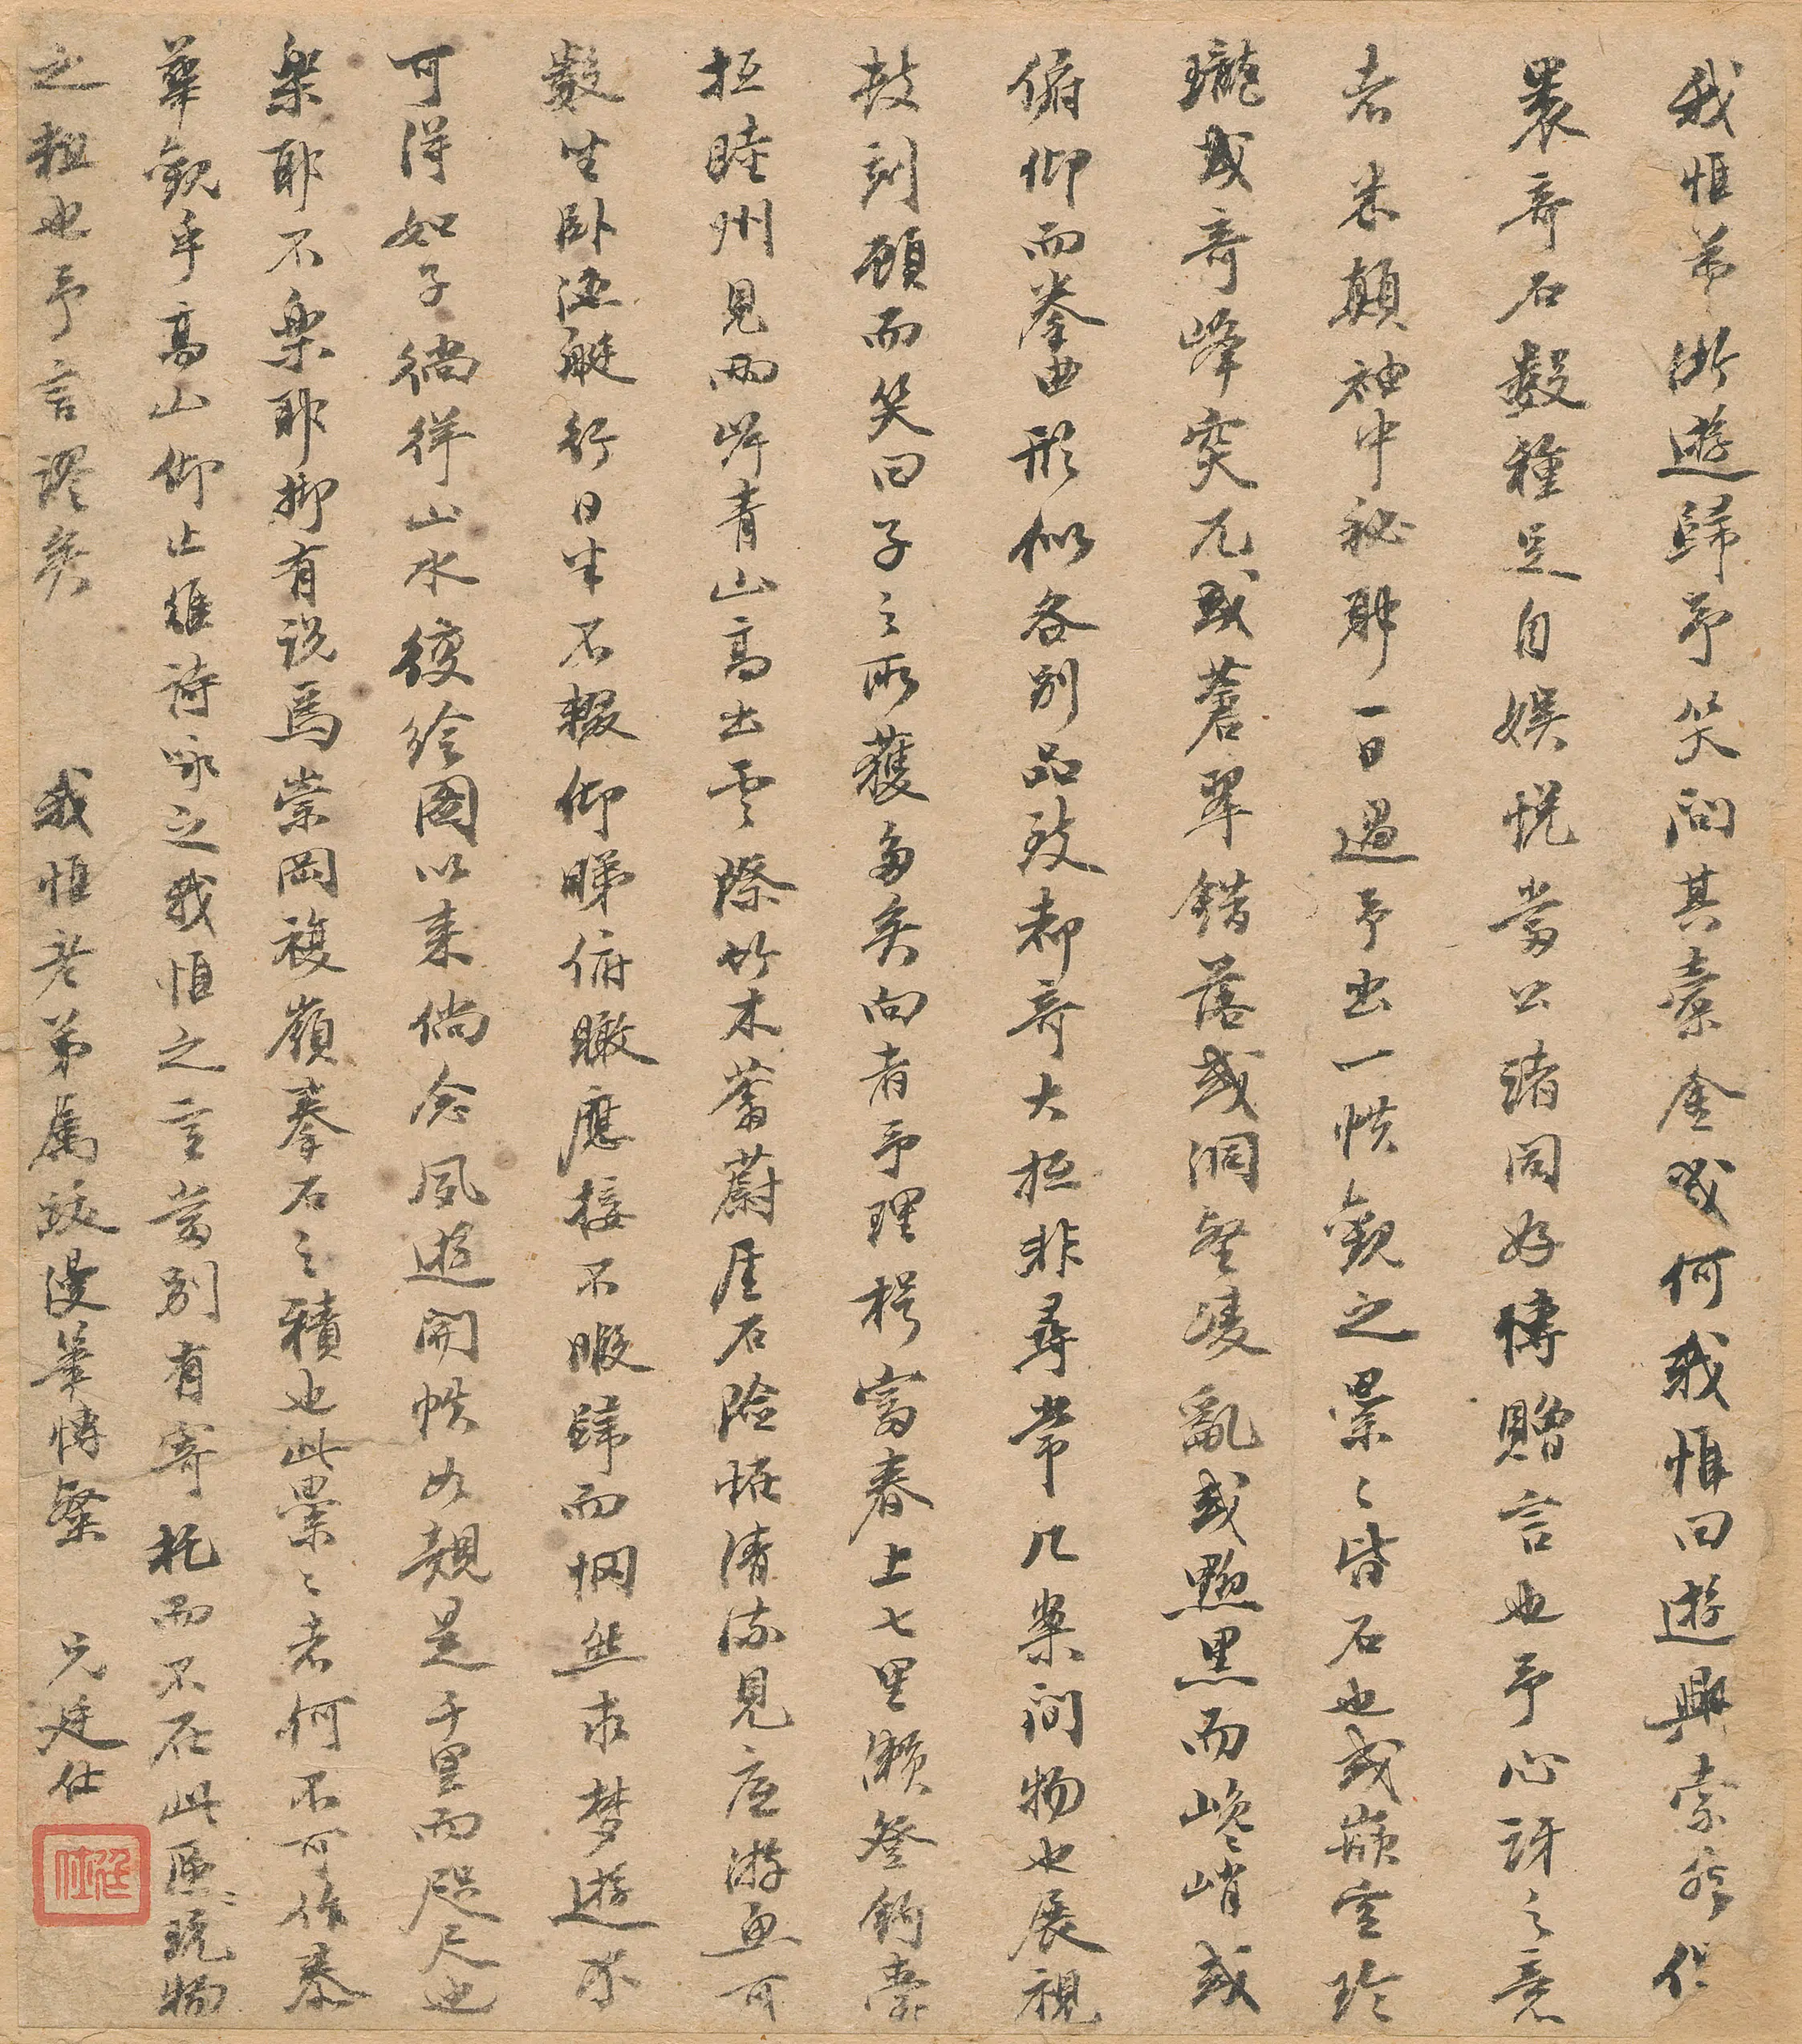 我惟弟浙遊歸予笑問其橐金哉何我惟曰遊興索然但
裹奇石數種足自娛悅當公諸同好傳贈言也予心訝之意
者米顛袖中秘耶一日過予出一帙觀之纍〻皆石也或嵌空玲
瓏或奇峰突兀或蒼翠錯落或洞壑凌亂或黝黑而巉峭或
俯仰而拳曲形似各別品致都奇大抵非尋常几案間物也展視
披刻顧而笑曰子之所獲多矣向者予理楫富春上七里瀨登釣臺
抵睦州見兩岸青山高出雲際竹木蓊蔚厓石險怪清流見底游魚可
數坐臥酒艇行日半不輟仰睇俯瞰應接不暇歸而惘然求夢遊不
可得如子徜徉山水後繪圖以來倘念夙遊開帙如覿是千里而咫尺也
樂耶不樂耶抑有說焉崇岡複嶺拳石之積也此纍〻者何不可作泰
華觀乎高山仰止維詩詠之我惟之言當別有寄托而不在此區〻玩物
之粗也予言謬矣 我惟老弟屬跋漫筆博粲 兄廷仕
廷仕